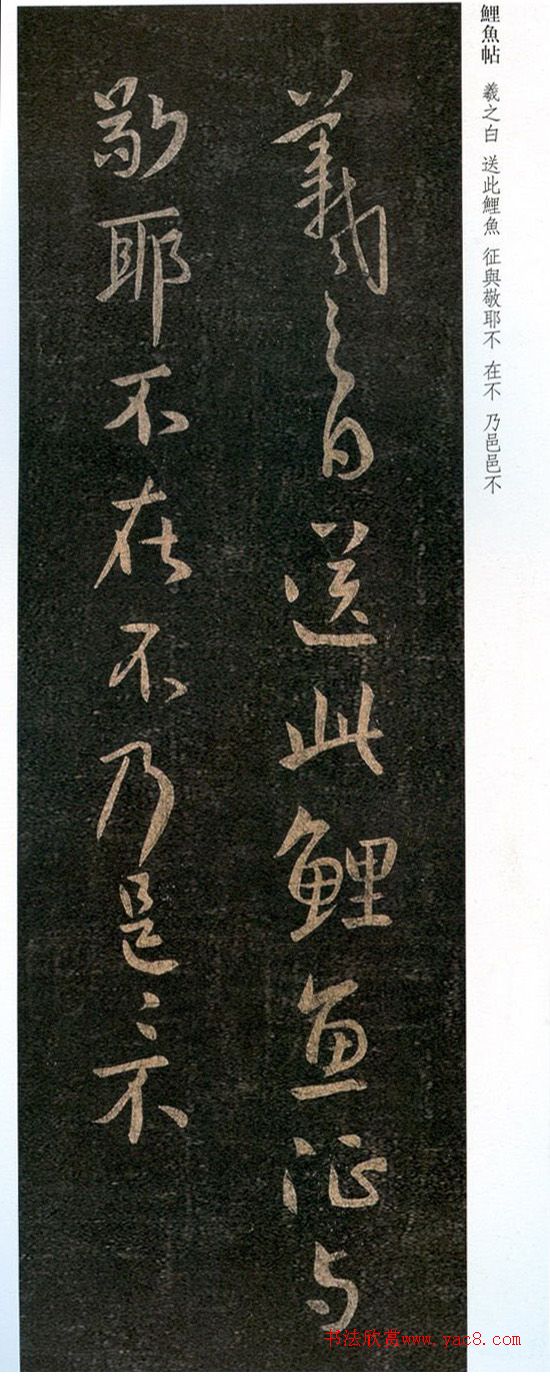 鯉魚帖 羲之白 送此鯉魚 征與敬耶不 在不 乃邑邑不
羲之白送此鯉魚征与
敬耶不在不乃邑〻不
书法欣赏www.yac8.com